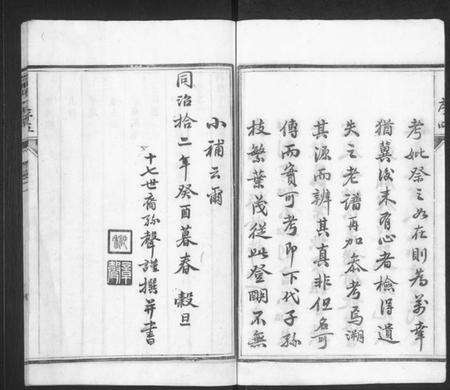 考妣發之如在則為萬幸
猶冀後來有心者檢得遺
失之老譜再加參考焉溯
其源而辨其真非但名可
傳而實可考即下代子孫
枝繁葉茂從此登明不無
小補云爾
同治拾二年癸酉暮春穀旦
十七世裔孫聲謹撰并書